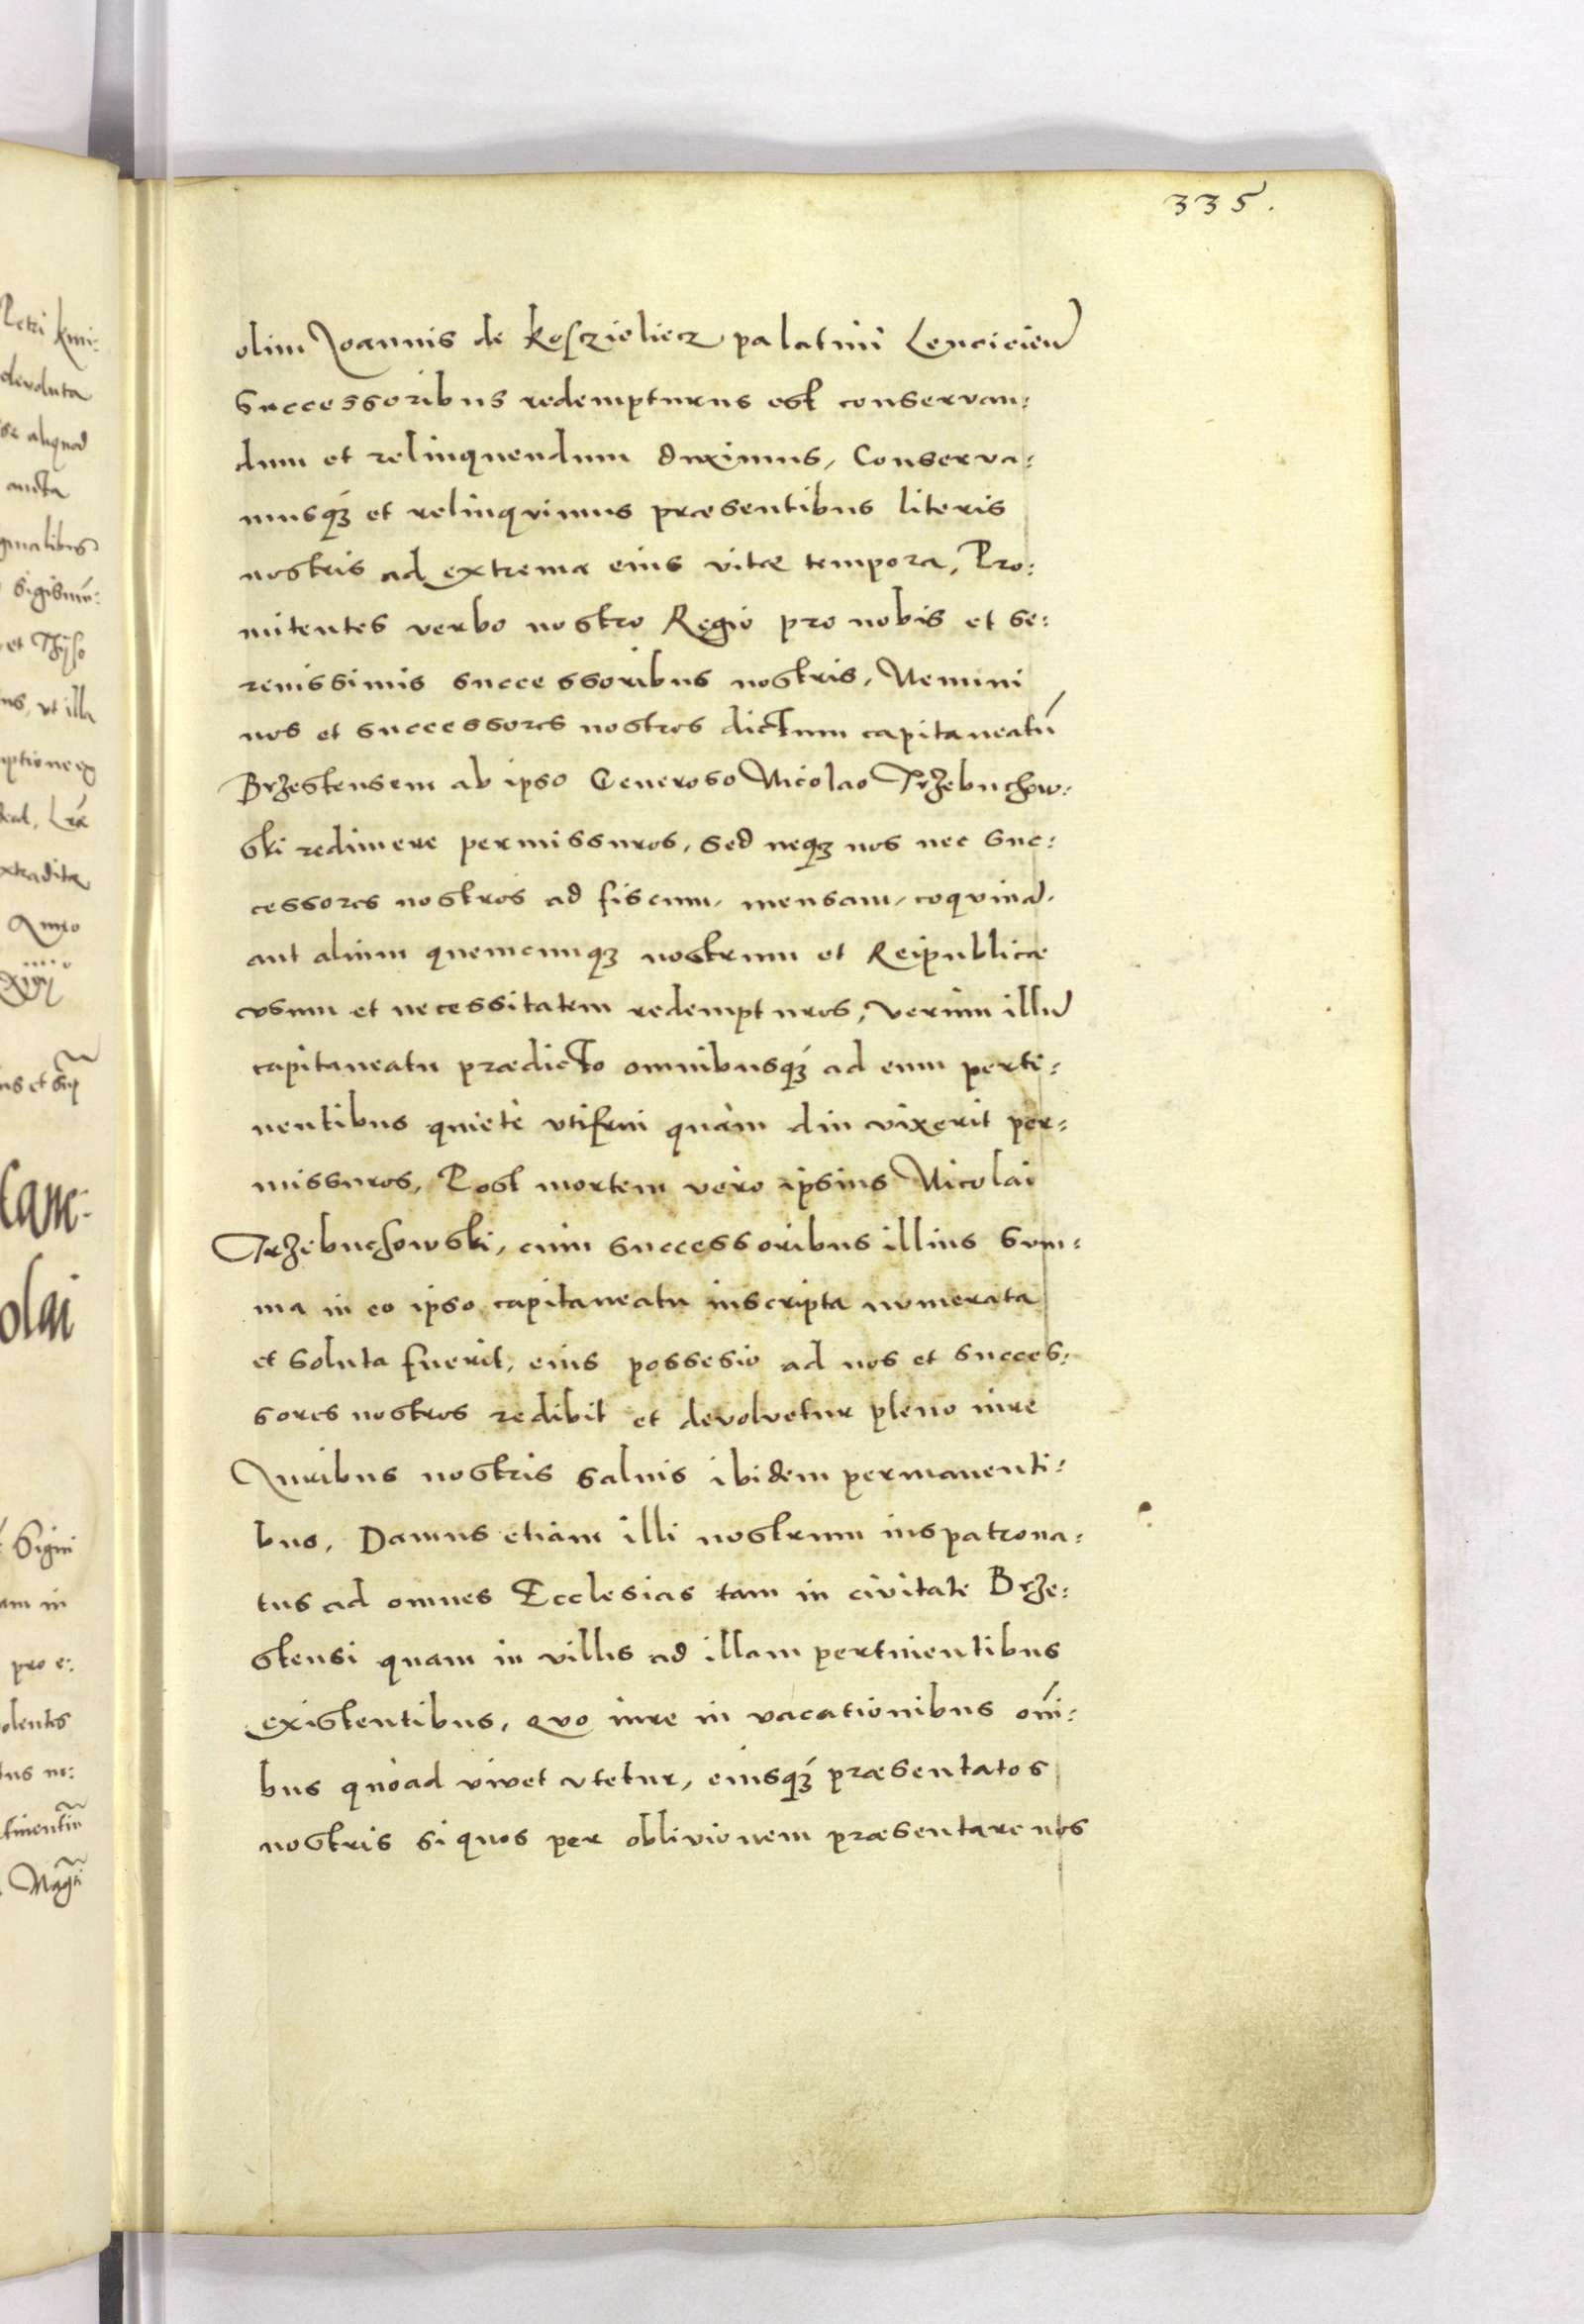 335.
olim Joannis de Kosczieliecz palatini Lencicien
successoribus redempturus est conservan:
dum et relinquendum duximus, Conserva:
musq3 et relinqvimus præsentibus literis
nostris ad extrema eius vitæ tempora, Pro:
mitentes verbo nostro Regio pro nobis et se:
renissimis successoribus nostris, Nemini
nos et successores nostros dictum capitaneatū
Brzestensem ab ipso Generoso Nicolao Trzebuchow:
ski redimere permissuros, sed neq3 nos nec suc:
cessores nostros ad fiscum, mensam, coqvinā,
aut alium quemcunq3 nostrum et Reipublicæ
vsum et necessitatem redempturos, verùm illū
capitaneatu prædicto omnibusq3 ad eum perti:
nentibus quietè vtifrui quàm diu vixerit per:
missuros, Post mortem vero ipsius Nicolai
Trzebuchowski, cùm successoribus illius sum:
ma in eo ipso capitaneatu inscripta numerata
et soluta fuerit, eius possesio ad nos et succes:
sores nostros redibit et devolvetur pleno iure
Juribus nostris saluis ibidem permanenti:
bus, Damus etiam illi nostrum iuspatrona:
tus ad omnes Ecclesias tam in civitate Brze:
stensi quam in villis ad illam pertinentibus
existentibus, qvo iure in vacationibus om̄i:
bus quòad vivet vtetur, eiusq3 præsentatos
nostris si quos per oblivionem præsentare nos
Petri Kmi:
devoluta
aliquod
et Thijso
ut illa
Sigismū:
olai
pro e:
am in